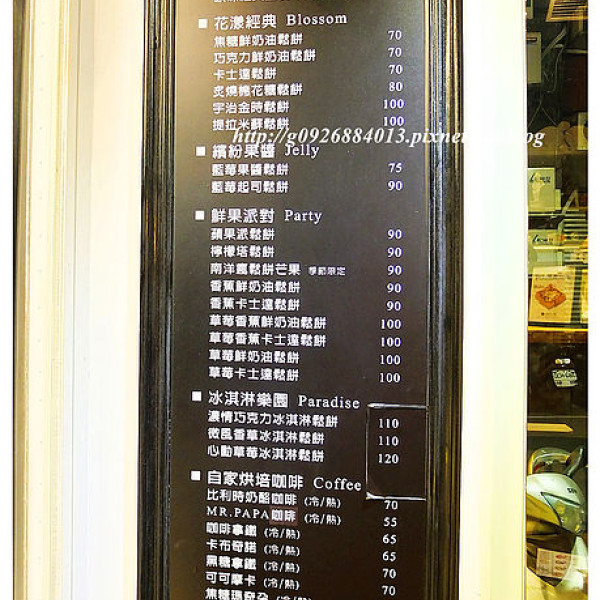 ■ 花漾經典 Blossom
焦糖鮮奶油鬆餅 70
巧克力鮮奶油鬆餅 70
卡士達鬆餅 70
炙燒棉花糖鬆餅 80
宇治金時鬆餅 100
提拉米蘇鬆餅 100
http://g0926884013.pixnet
■ 繽紛果醬 Jelly
藍莓果醬鬆餅 75
藍莓起司鬆餅 90
■ 鮮果派對 Party
蘋果派鬆餅 90
檸檬塔鬆餅 90
南洋風鬆餅芒果 季節限定 90
香蕉鮮奶油鬆餅 90
香蕉卡士達鬆餅 90
草莓香蕉鮮奶油鬆餅 100
草莓香蕉卡士達鬆餅 100
草莓鮮奶油鬆餅 100
草莓卡士達鬆餅 100
■ 冰淇淋樂園 Paradise
濃情巧克力冰淇淋鬆餅 110
微風香草冰淇淋鬆餅 110
心動草莓冰淇淋鬆餅 120
■ 自家烘培咖啡 Coffee
比利時奶酪咖啡 (冷/熱) 70
MR.PAPA咖啡 (冷/熱) 55
咖啡拿鐵 (冷/熱) 65
卡布奇諾 (冷/熱) 65
黑糖拿鐵 (冷/熱) 70
可可摩卡 (冷/熱) 70
焦糖瑪奇朵 (冷/熱) 70